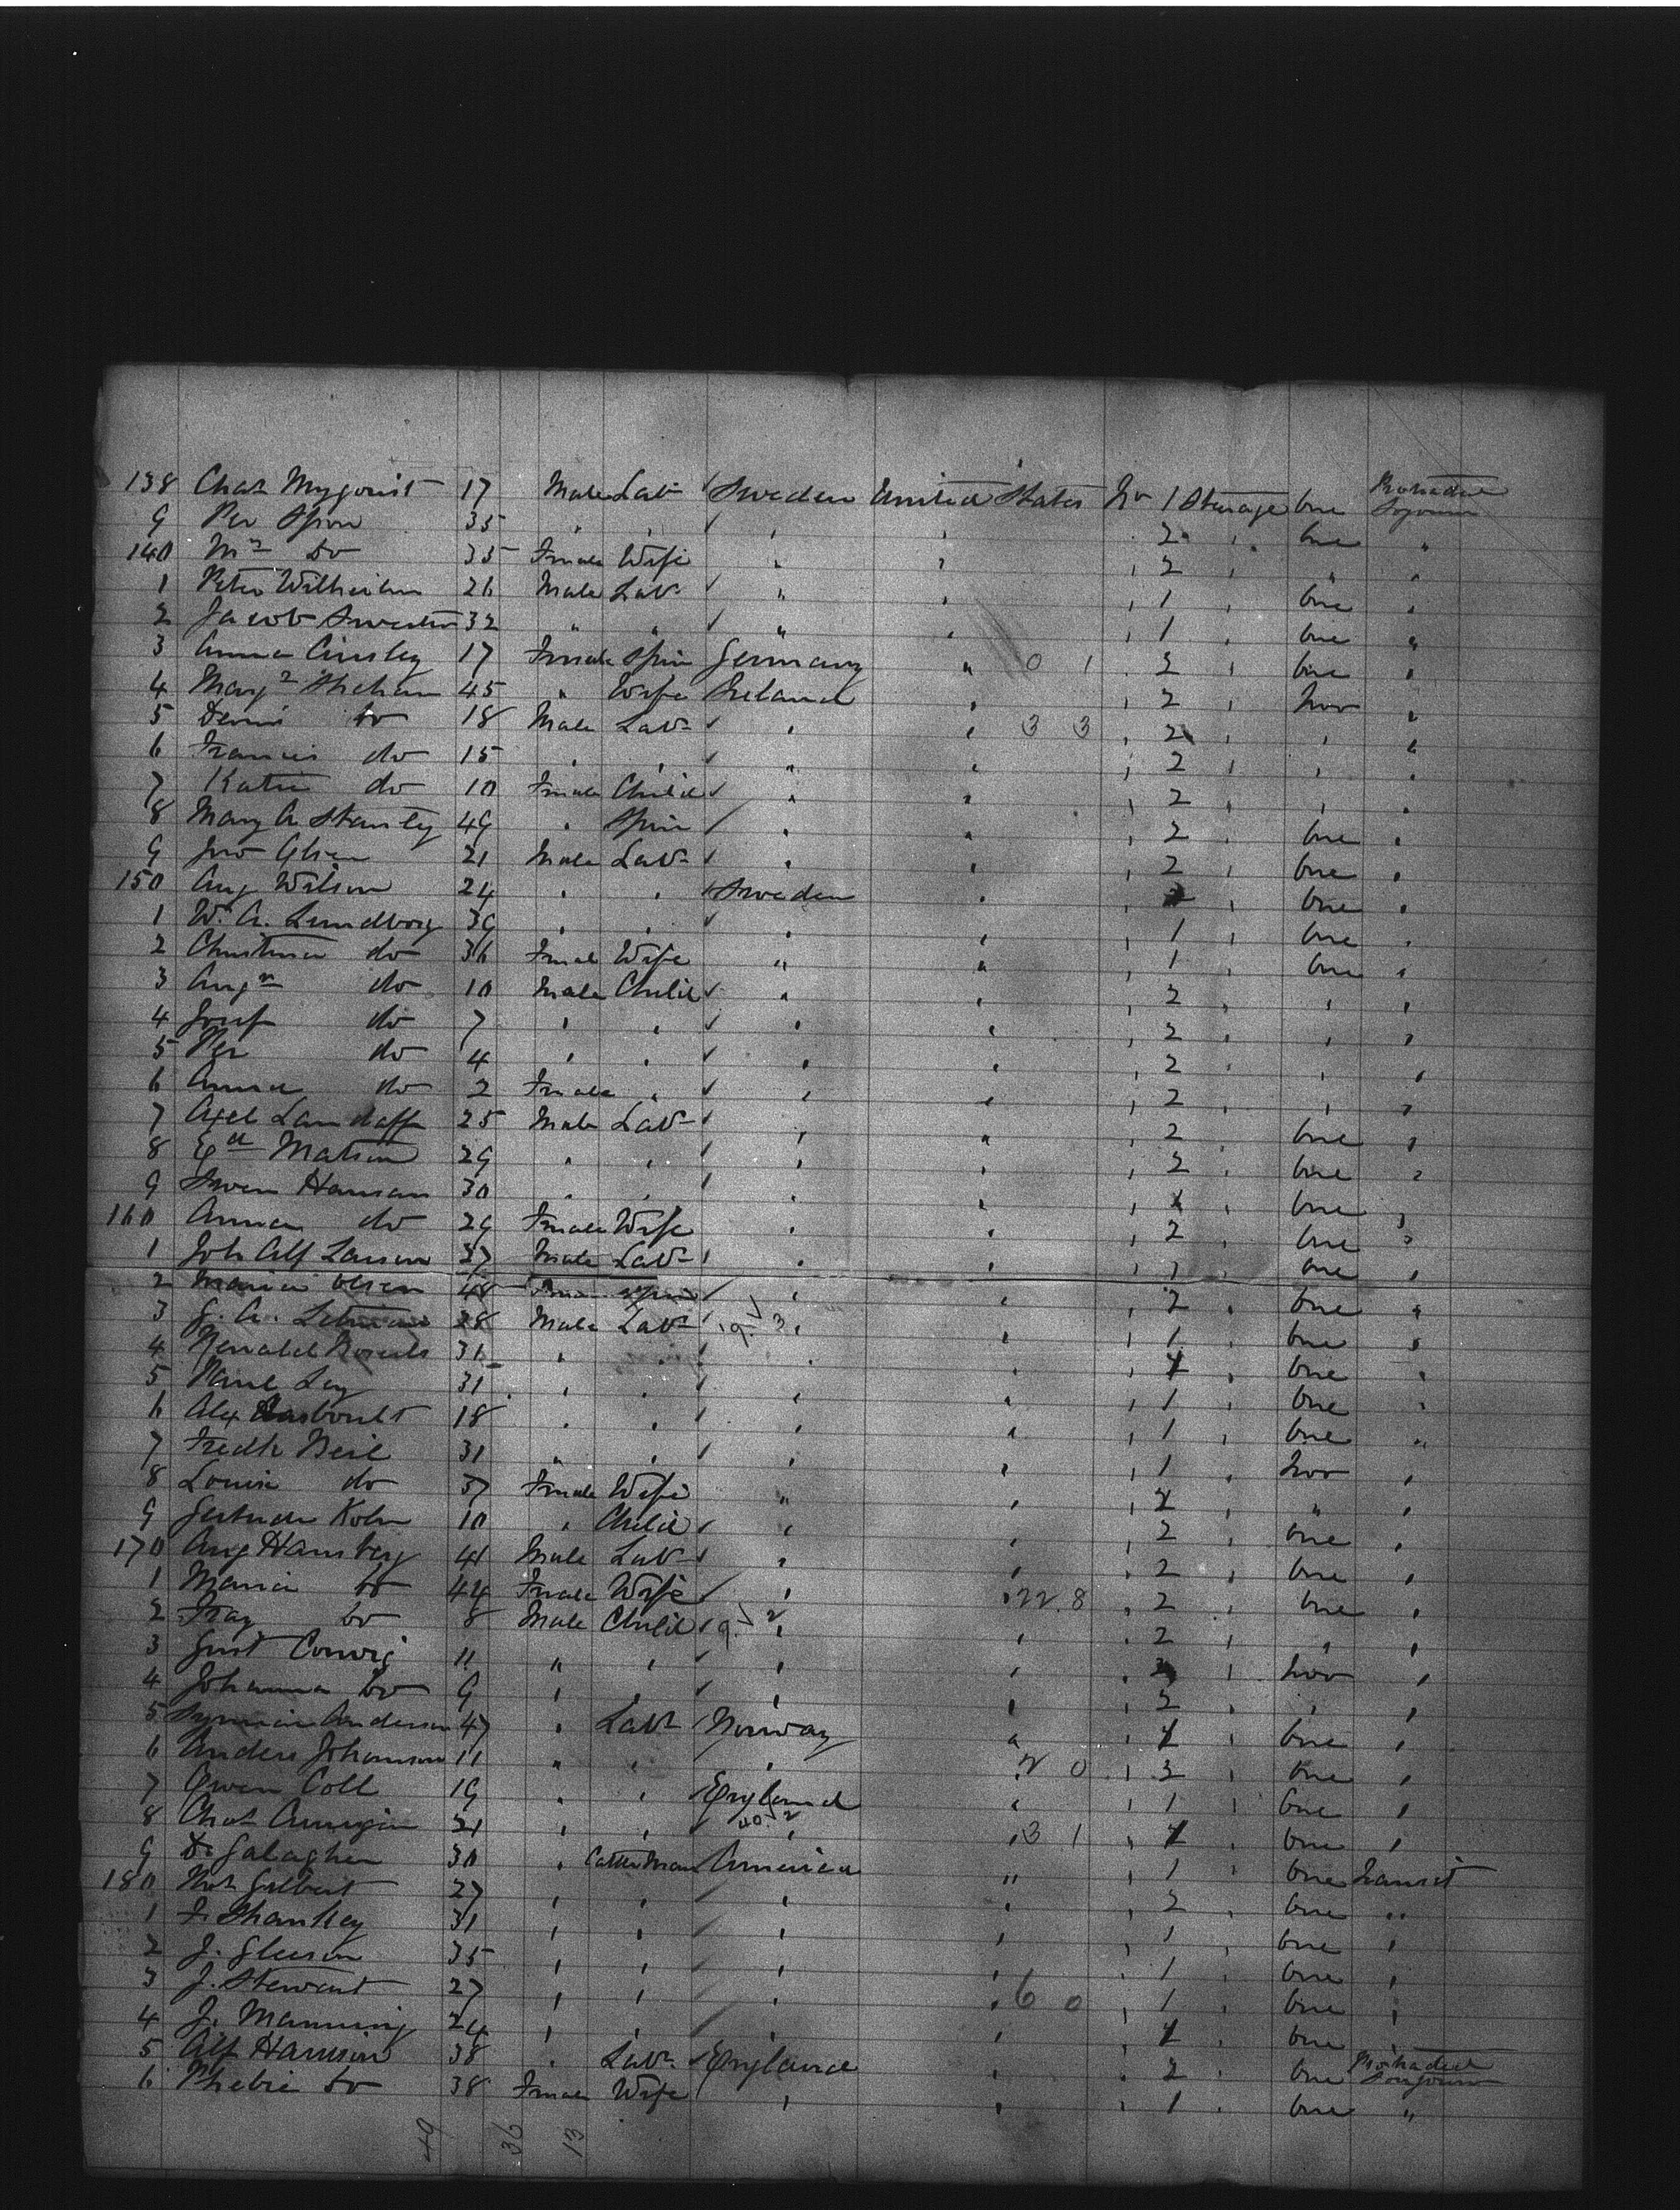 138 Chas Myqvist 17 Male Labr Sweden United States No 1 Steerage One Protracted Sojourn
9 Per 35 " " " " " 2 " One "
140 Mrs Do 35 Female Wife " " " 2 " " "
1 Peter 26 Male Labr " " " 1 One "
2 Jacob 32 " " " " " 1 One "
3 Anna Ainsley 17 Female Spin Germany " 0 1 " 2 " One "
4 Margt Sheehan 45 " Wife Ireland " " 2 " Two "
5 Denis Do 18 Male Labr " " 3 3 " 2 " "
6 Francis do 15 " " " " " 2 " " "
7 Katie do 10 Female Child " " " 2 " " "
8 Mary A Stanley 49 " Spin " " " 2 " One "
9 Jno 21 Male Labr " " " 2 " One "
150 Aug Wilson 24 " " Sweden " " " One "
1 W. A. Lundborg 39 " " " " " 1 " One "
2 Christina do 36 Female Wife " " " 1 " One "
3 Aug do 10 Male Child " " " 2 " " "
4 Josef do 7 " " " " " 2 " " "
5 Per do 4 " " " " " 2 " " "
6 Anna do 2 Female " " " " 2 " " "
7 Axel 25 Male Labr " " " 2 " One "
8 Matson 29 " " " " " 2 " One "
9 Swen Hanson 30 " " " " " 1 " One "
160 Anna do 29 Female Wife " " " 2 " One "
1 Joh Alf Larson 27 Male Labr " " " 1 " One "
2 Maria Olsen 48 Female Spin " " " 2 " One "
3 G. A. 28 Male Labr 9. 3 " " " 1 " One "
4 31 " " " " " 1 " One "
5 31 " " " " " 1 " One "
6 Alex 18 " " " " " 1 " One "
7 Fredk Neil 31 " " " " " 1 " Two "
8 Louisa do 37 Female Wife " " " 2 " " "
9 Gertrude Kohn 10 " Child " " " 2 " One "
170 Aug Hamberg 41 Male Labr " " " 2 " One "
1 Maria Do 44 Female Wife " " 22 8 " 2 " One "
2 Do 8 Male Child 9. 2 " " " 2 " " "
3 Gust 11 " " " " " 2 " Two "
4 Johanna Do 9 " " " " " 2 " " "
5 Anderson 47 " Labr Norway " " 1 " One "
6 Anders Johanson 11 " " " " 2 0 " 2 " One "
7 Owen Coll 19 " " England " " 1 " One "
8 Chas 21 " " 40. 2 " " 3 1 " 1 " One "
9 D. Galagher 30 " Cattle Man America " " 1 " One Transit
180 Thos Gilbert 27 " " " " " 2 " One "
1 F. Shankey 31 " " " " " 1 " One "
2 J. Gleeson 35 " " " " " 1 " One "
3 J. Stewart 27 " " " " 6 0 " 1 " One "
4 J. Manning 24 " " " " " 1 " One "
5 Alf Harrison 38 " Labr England " " 2 " One Protracted Sojourn
6 Phebie Do 38 Female Wife " " " 1 " One "
49 36 13